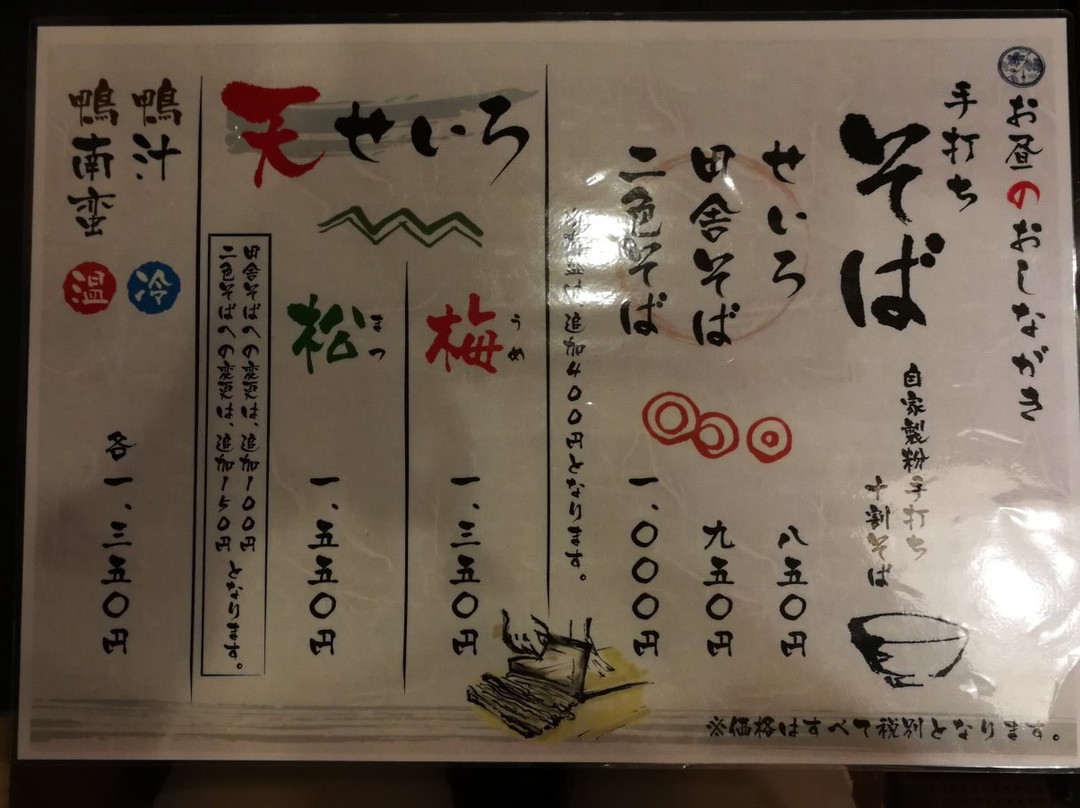 お昼のおしながき
手打ち
そば
自家製粉手打ち
十割そば
せいろ
八五〇円
田舎そば
九五〇円
二色そば
一、〇〇〇円
追加400円となります。
天せいろ
梅
うめ
一、三五〇円
松
まつ
一、五五〇円
田舎そばへの変更は、追加100円
二色そばへの変更は、追加150円
となります。
鴨汁
冷
鴨南蛮
温
各一、三五〇円
※価格はすべて税別となります。